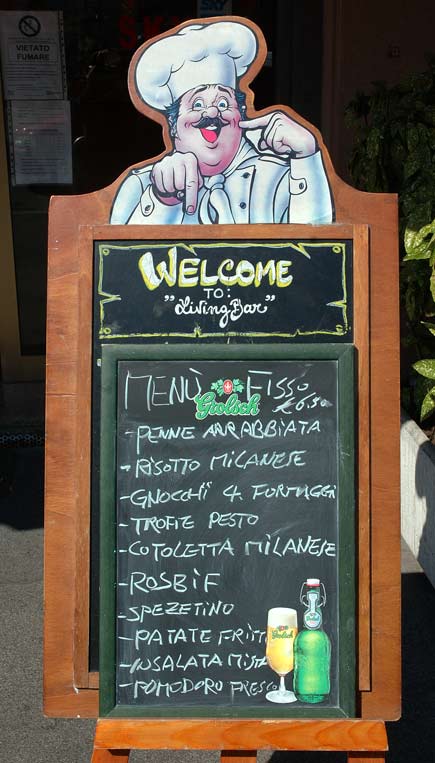 SKY
SKY
VIETATO
FUMARE
WELCOME
TO:
"Living Bar"
MENÙ FISSO
Grolsch
€ 6,50
- PENNE ARRABBIATA
- RISOTTO MILANESE
- GNOCCHI 4 FORMAGGI
- TROFIE PESTO
- COTOLETTA MILANESE
- ROSBIF
- SPEZETINO
- PATATE FRITT
- INSALATA MISTA
- POMODORO FRESCO
Grolsch